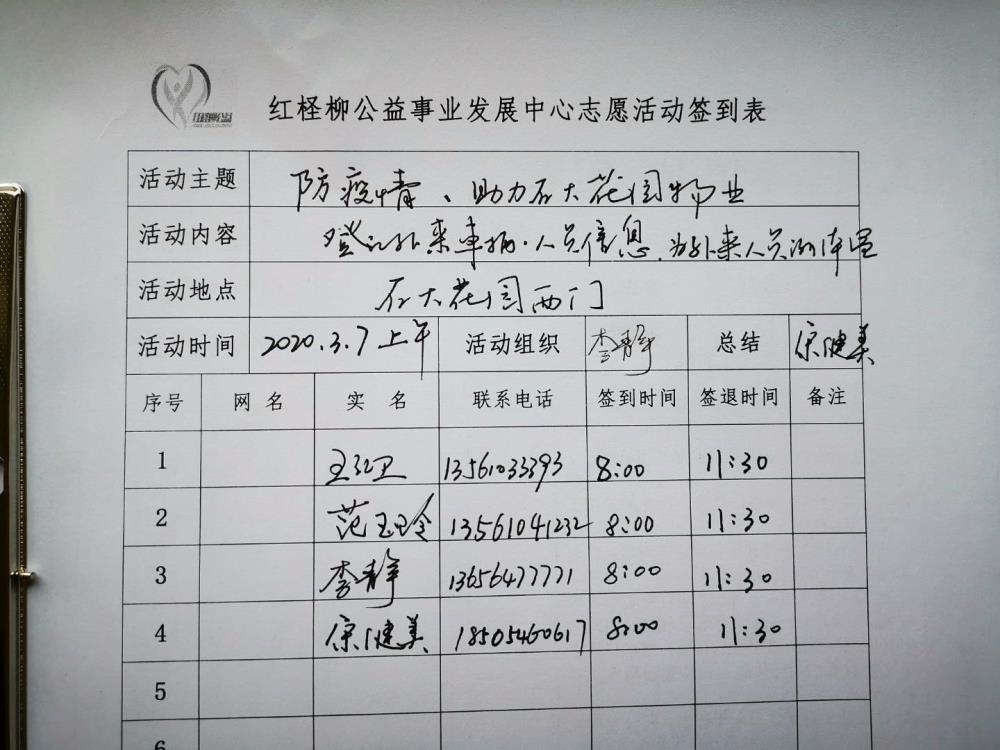 红柽柳公益事业发展中心志愿活动签到表
活动主题 防疫情、助力石大花园物业
活动内容 登记外来车辆、人员信息、为外来人员测体温
活动地点 石大花园西门
活动时间 2020.3.7上午 活动组织 李静 总结 宋健美
序号 网名 实名 联系电话 签到时间 签退时间 备注
1 王红卫 13561033393 8:00 11:30
2 范玉玲 13561041232 8:00 11:30
3 李静 13656477771 8:00 11:30
4 宋健美 18505460617 8:00 11:30
5
6